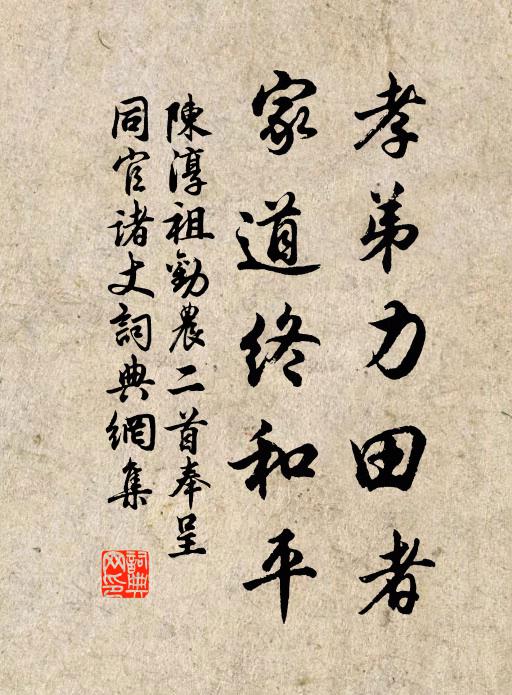 孝弟力田者
家道終和平
陳淳祖勸農二首奉呈
同官诸丈詞典網集
詞典
网印